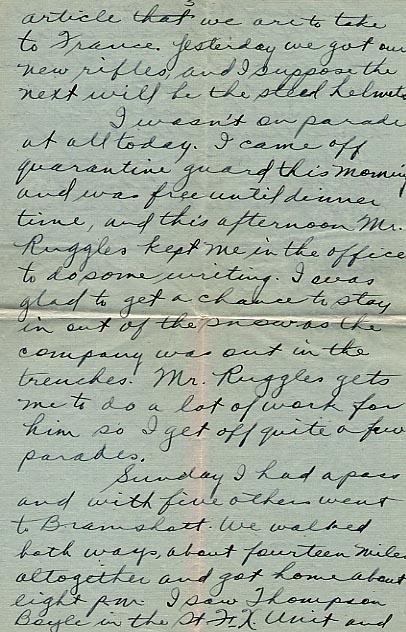 3
article that we are to take
to France. Yesterday we got our
new rifles, and I suppose the
next will be the steel helmets
I wasn't on parade
at all today. I came off
quarantine guard this morning
and was free until dinner
time, and this afternoon Mr.
Ruggles kept me in the office
to do some writing. I was
glad to get a chance to stay
in out of the snow as the
company was out in the
trenches. Mr. Ruggles gets
me to do a lot of work for
him so I get off quite a few
parades.
Sunday I had a pass
and with five others went
to Bramshott. We walked
both ways, about fourteen miles
altogether and got home about
eight p.m. I saw Thompson
Boyle in the St. F.X. Unit and